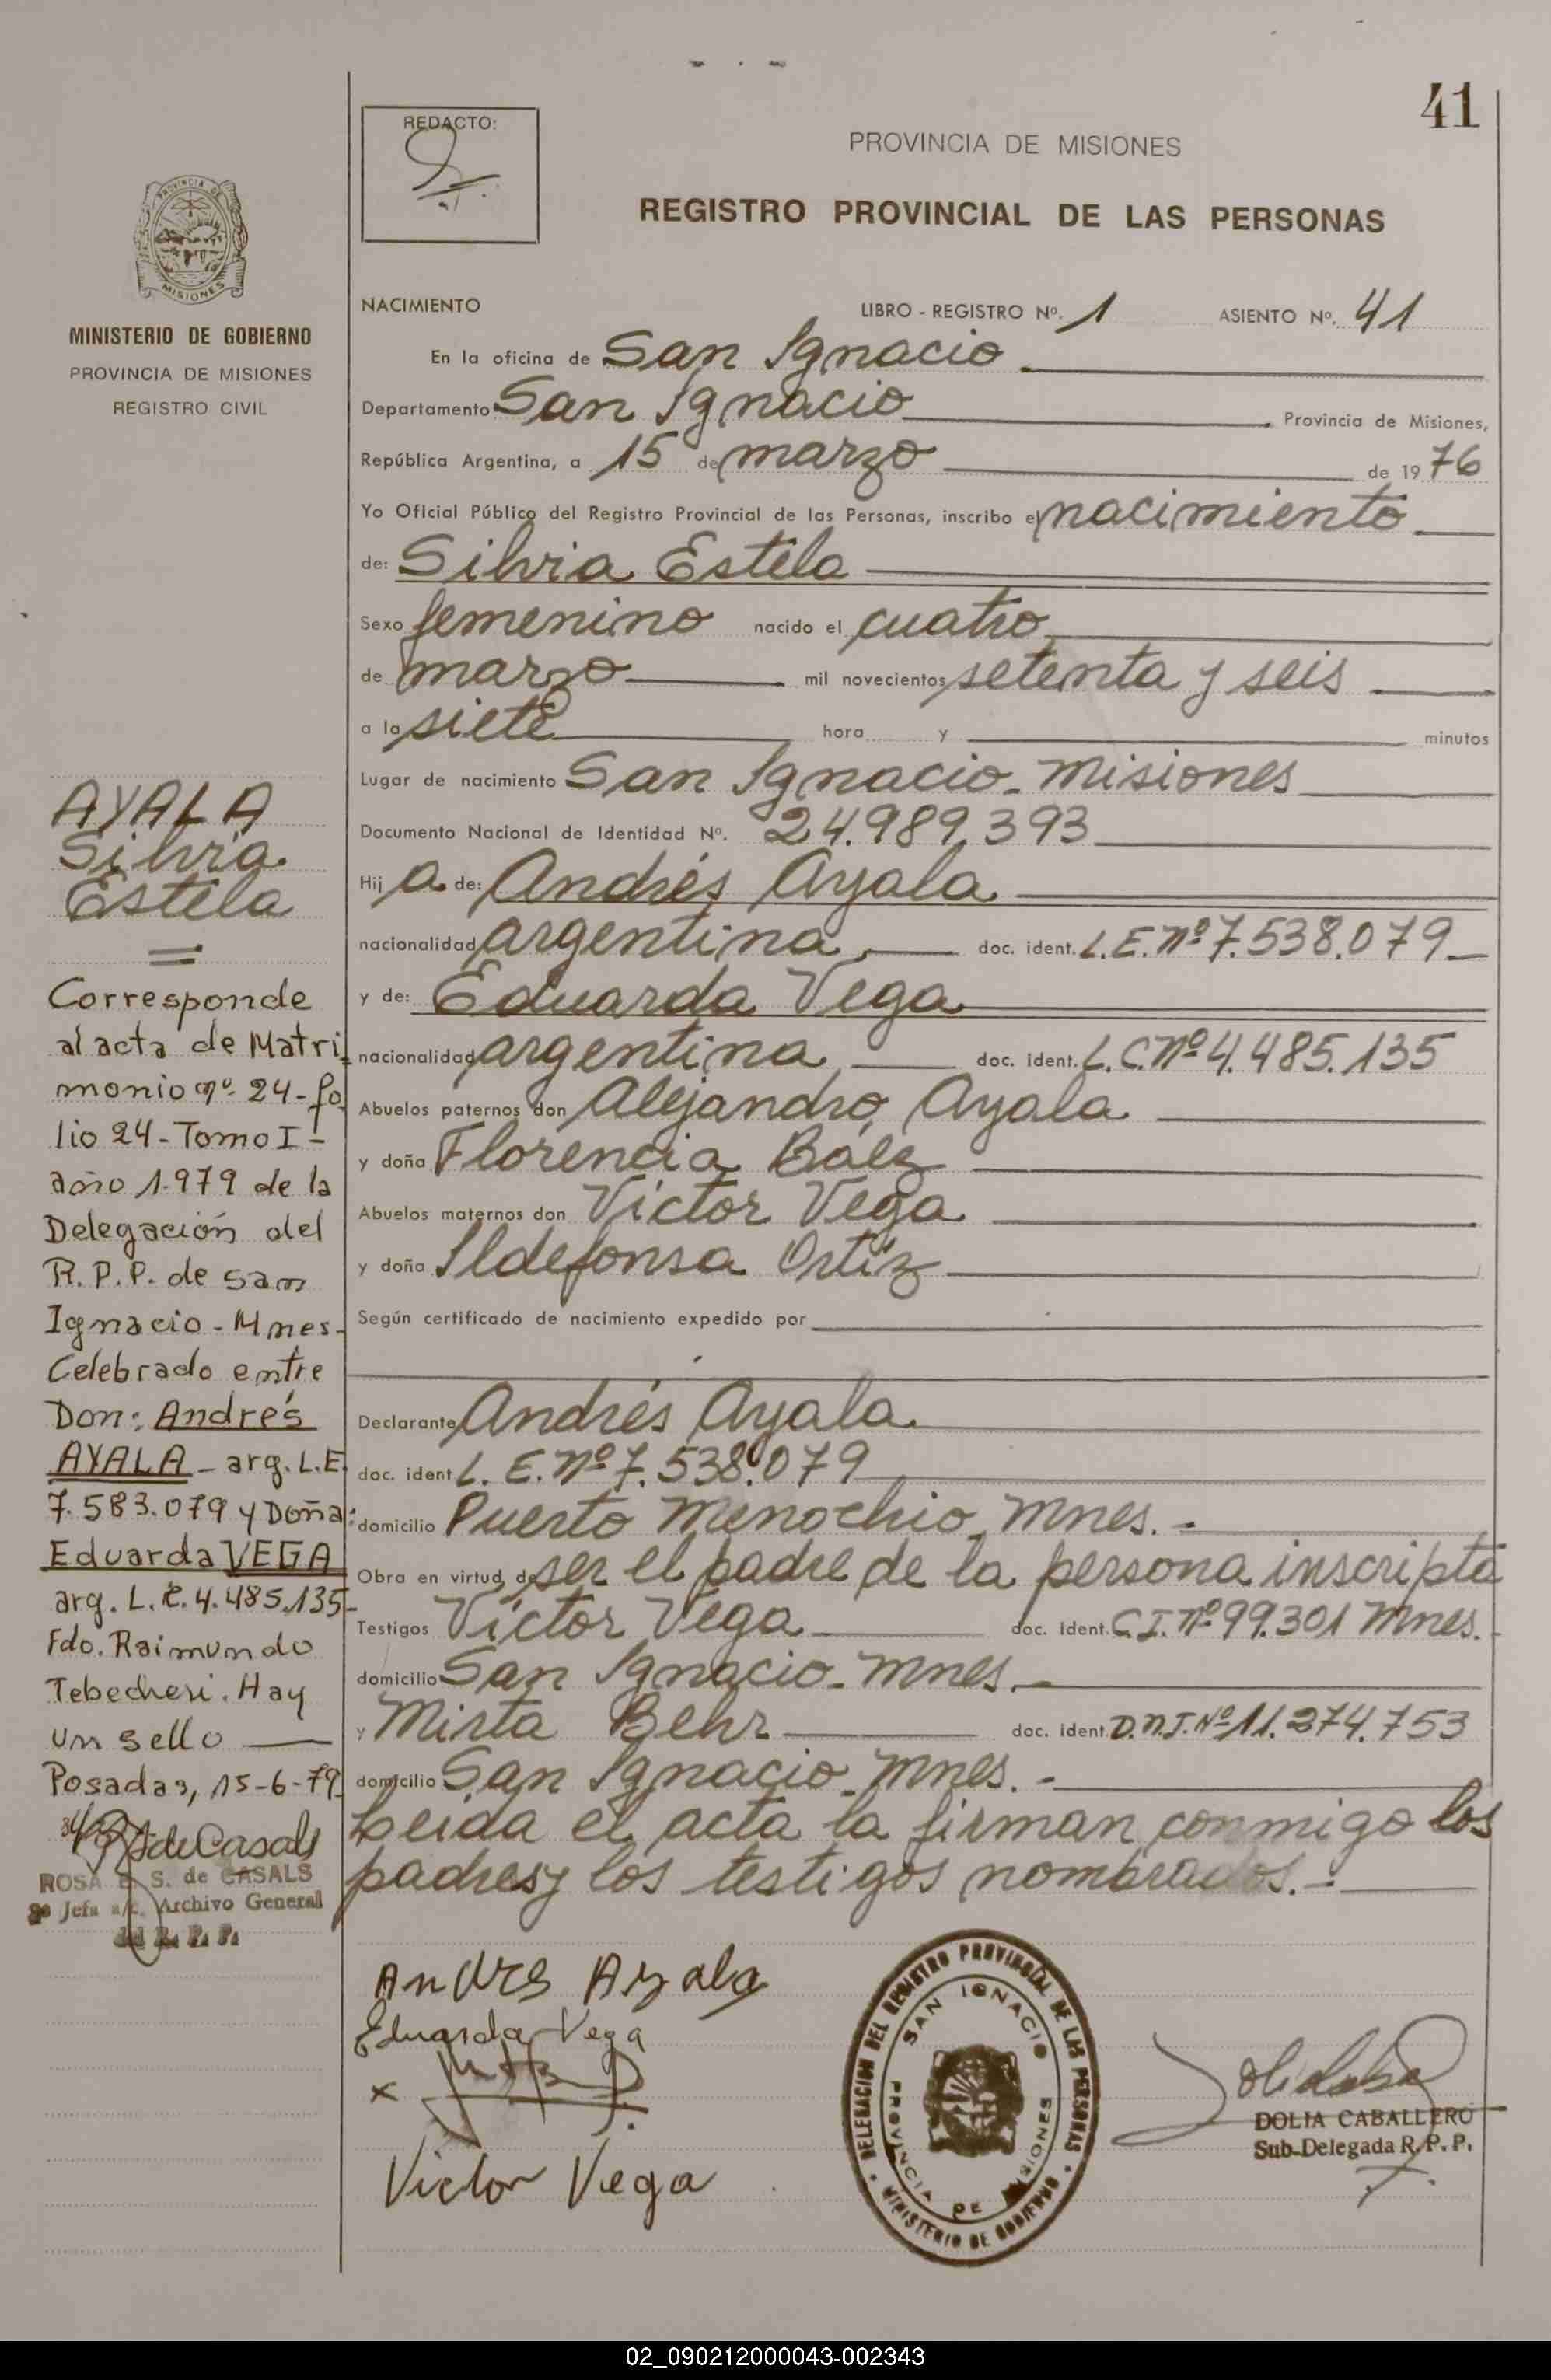 41
REDACTO:
PROVINCIA DE MISIONES
REGISTRO PROVINCIAL DE LAS PERSONAS
PROVINCIA DE
MISIONES
MINISTERIO DE GOBIERNO
PROVINCIA DE MISIONES
REGISTRO CIVIL
NACIMIENTO LIBRO - REGISTRO Nº. 1 ASIENTO Nº. 41
En la oficina de San Ignacio
Departamento San Ignacio . Provincia de Misiones,
República Argentina, a 15 de marzo de 1976
Yo Oficial Público del Registro Provincial de las Personas, inscribo el nacimiento
de: Silvia Estela
Sexo femenino nacido el cuatro
de marzo mil novecientos setenta y seis
a la siete hora y minutos
Lugar de nacimiento San Ignacio - Misiones
Documento Nacional de Identidad Nº. 24.989.393
Hij a de: Andrés Ayala
nacionalidad argentina, doc. ident. L.E. nº 7.538.079
y de: Eduarda Vega
nacionalidad argentina, doc. ident. L.C. nº 4.485.135
Abuelos paternos don Alejandro Ayala
y doña Florencia Báez
Abuelos maternos don Víctor Vega
y doña Ildefonsa Ortíz
Según certificado de nacimiento expedido por
Declarante Andrés Ayala
doc. ident L.E. nº 7.538.079
domicilio Puerto Menochio, Mnes. -
Obra en virtud de ser el padre de la persona inscripta
Testigos Víctor Vega doc. ident. C.I. nº 99.301 Mnes.
domicilio San Ignacio - Mnes. -
y Mirta Behr doc. ident. D.N.I. Nº 11.274.753
domicilio San Ignacio - Mnes. -
Leída el acta la firman conmigo los
padres y los testigos nombrados. -
AYALA
Silvia
Estela
=
Corresponde
al acta de Matri
monio nº 24 - fo
lio 24 - Tomo I -
año 1.979 de la
Delegación del
R.P.P. de San
Ignacio - Mnes -
Celebrado entre
Don: Andrés
AYALA - arg. L.E.
7.583.079 y Doña:
Eduarda VEGA
arg. L.C. 4.485.135-
Fdo. Raimundo
Tebecheri. Hay
un sello
Posadas, 15-6-79
S de Casals
ROSA E S. de CASALS
Jefa a/c. Archivo General
del R. P. P.
Andres Ayala
Eduarda Vega
x
Victor Vega
DELEGACION DEL REGISTRO PROVINCIAL DE LAS PERSONAS
MINISTERIO DE GOBIERNO
SAN IGNACIO
PROVINCIA DE MISIONES
DOLIA CABALLERO
Sub-Delegada R.P.P.
02_090212000043-002343